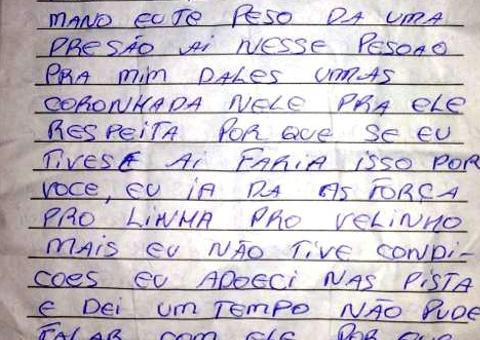 MANO EU TE PESO DA UMA
PRESÃO AI NESSE PESOAO
PRA MIM DALES UMAS
CORONHADA NELE PRA ELE
RESPEITA POR QUE SE EU
TIVESE AI FARIA ISSO POR
VOCE, EU IA DA AS FORÇA
PRO LINHA PRO VELINHO
MAIS EU NÃO TIVE CONDI-
COES EU ADOECI NAS PISTA
E DEI UM TEMPO NÃO PUDE
FALAR COM ELE POR QUE